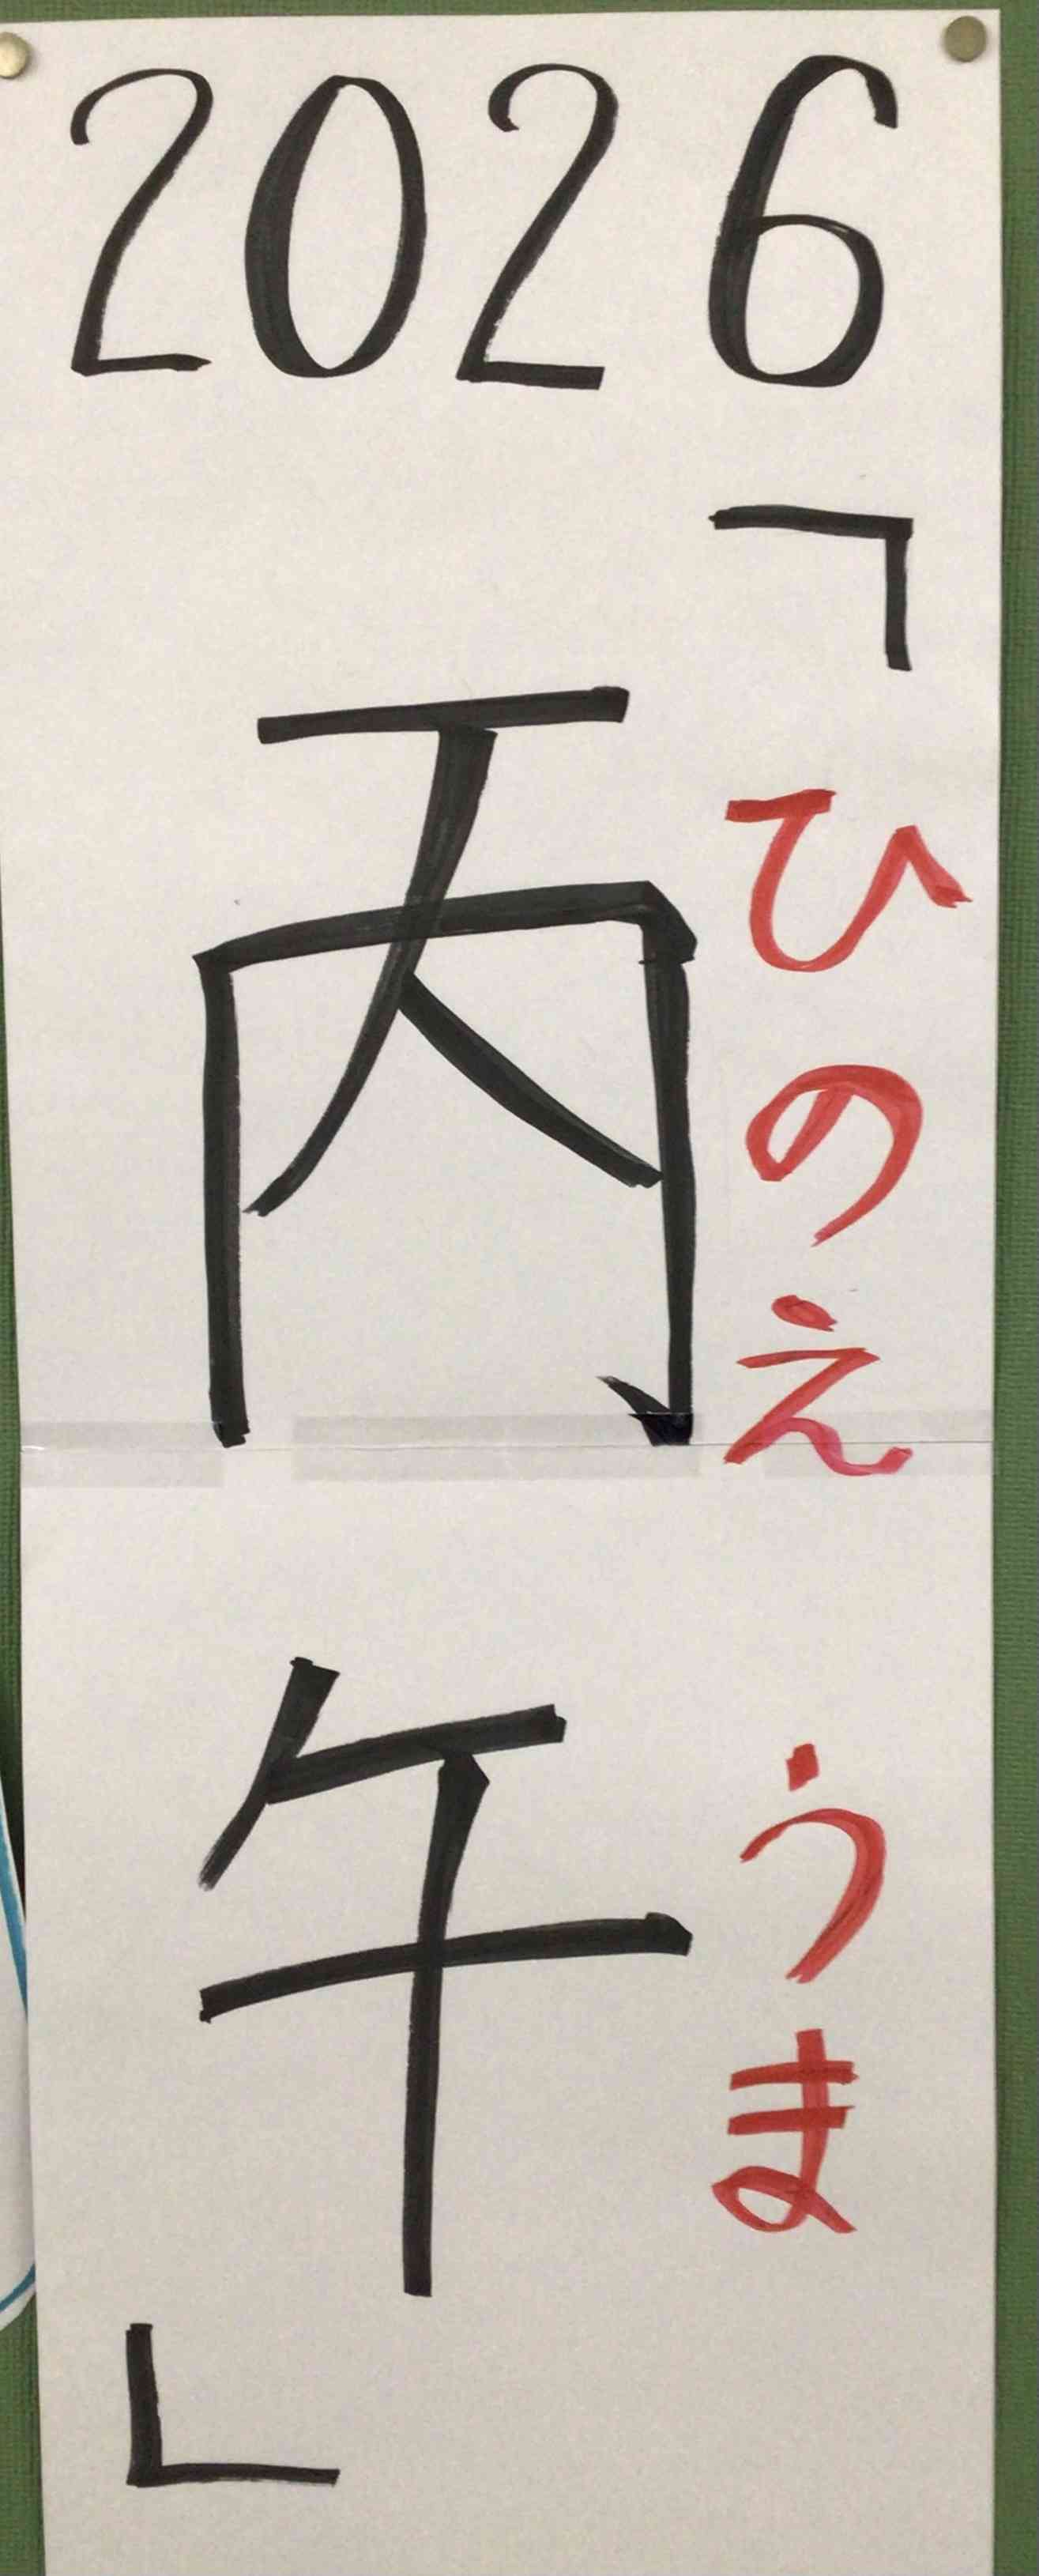 2026
「丙午」
ひのえ うま